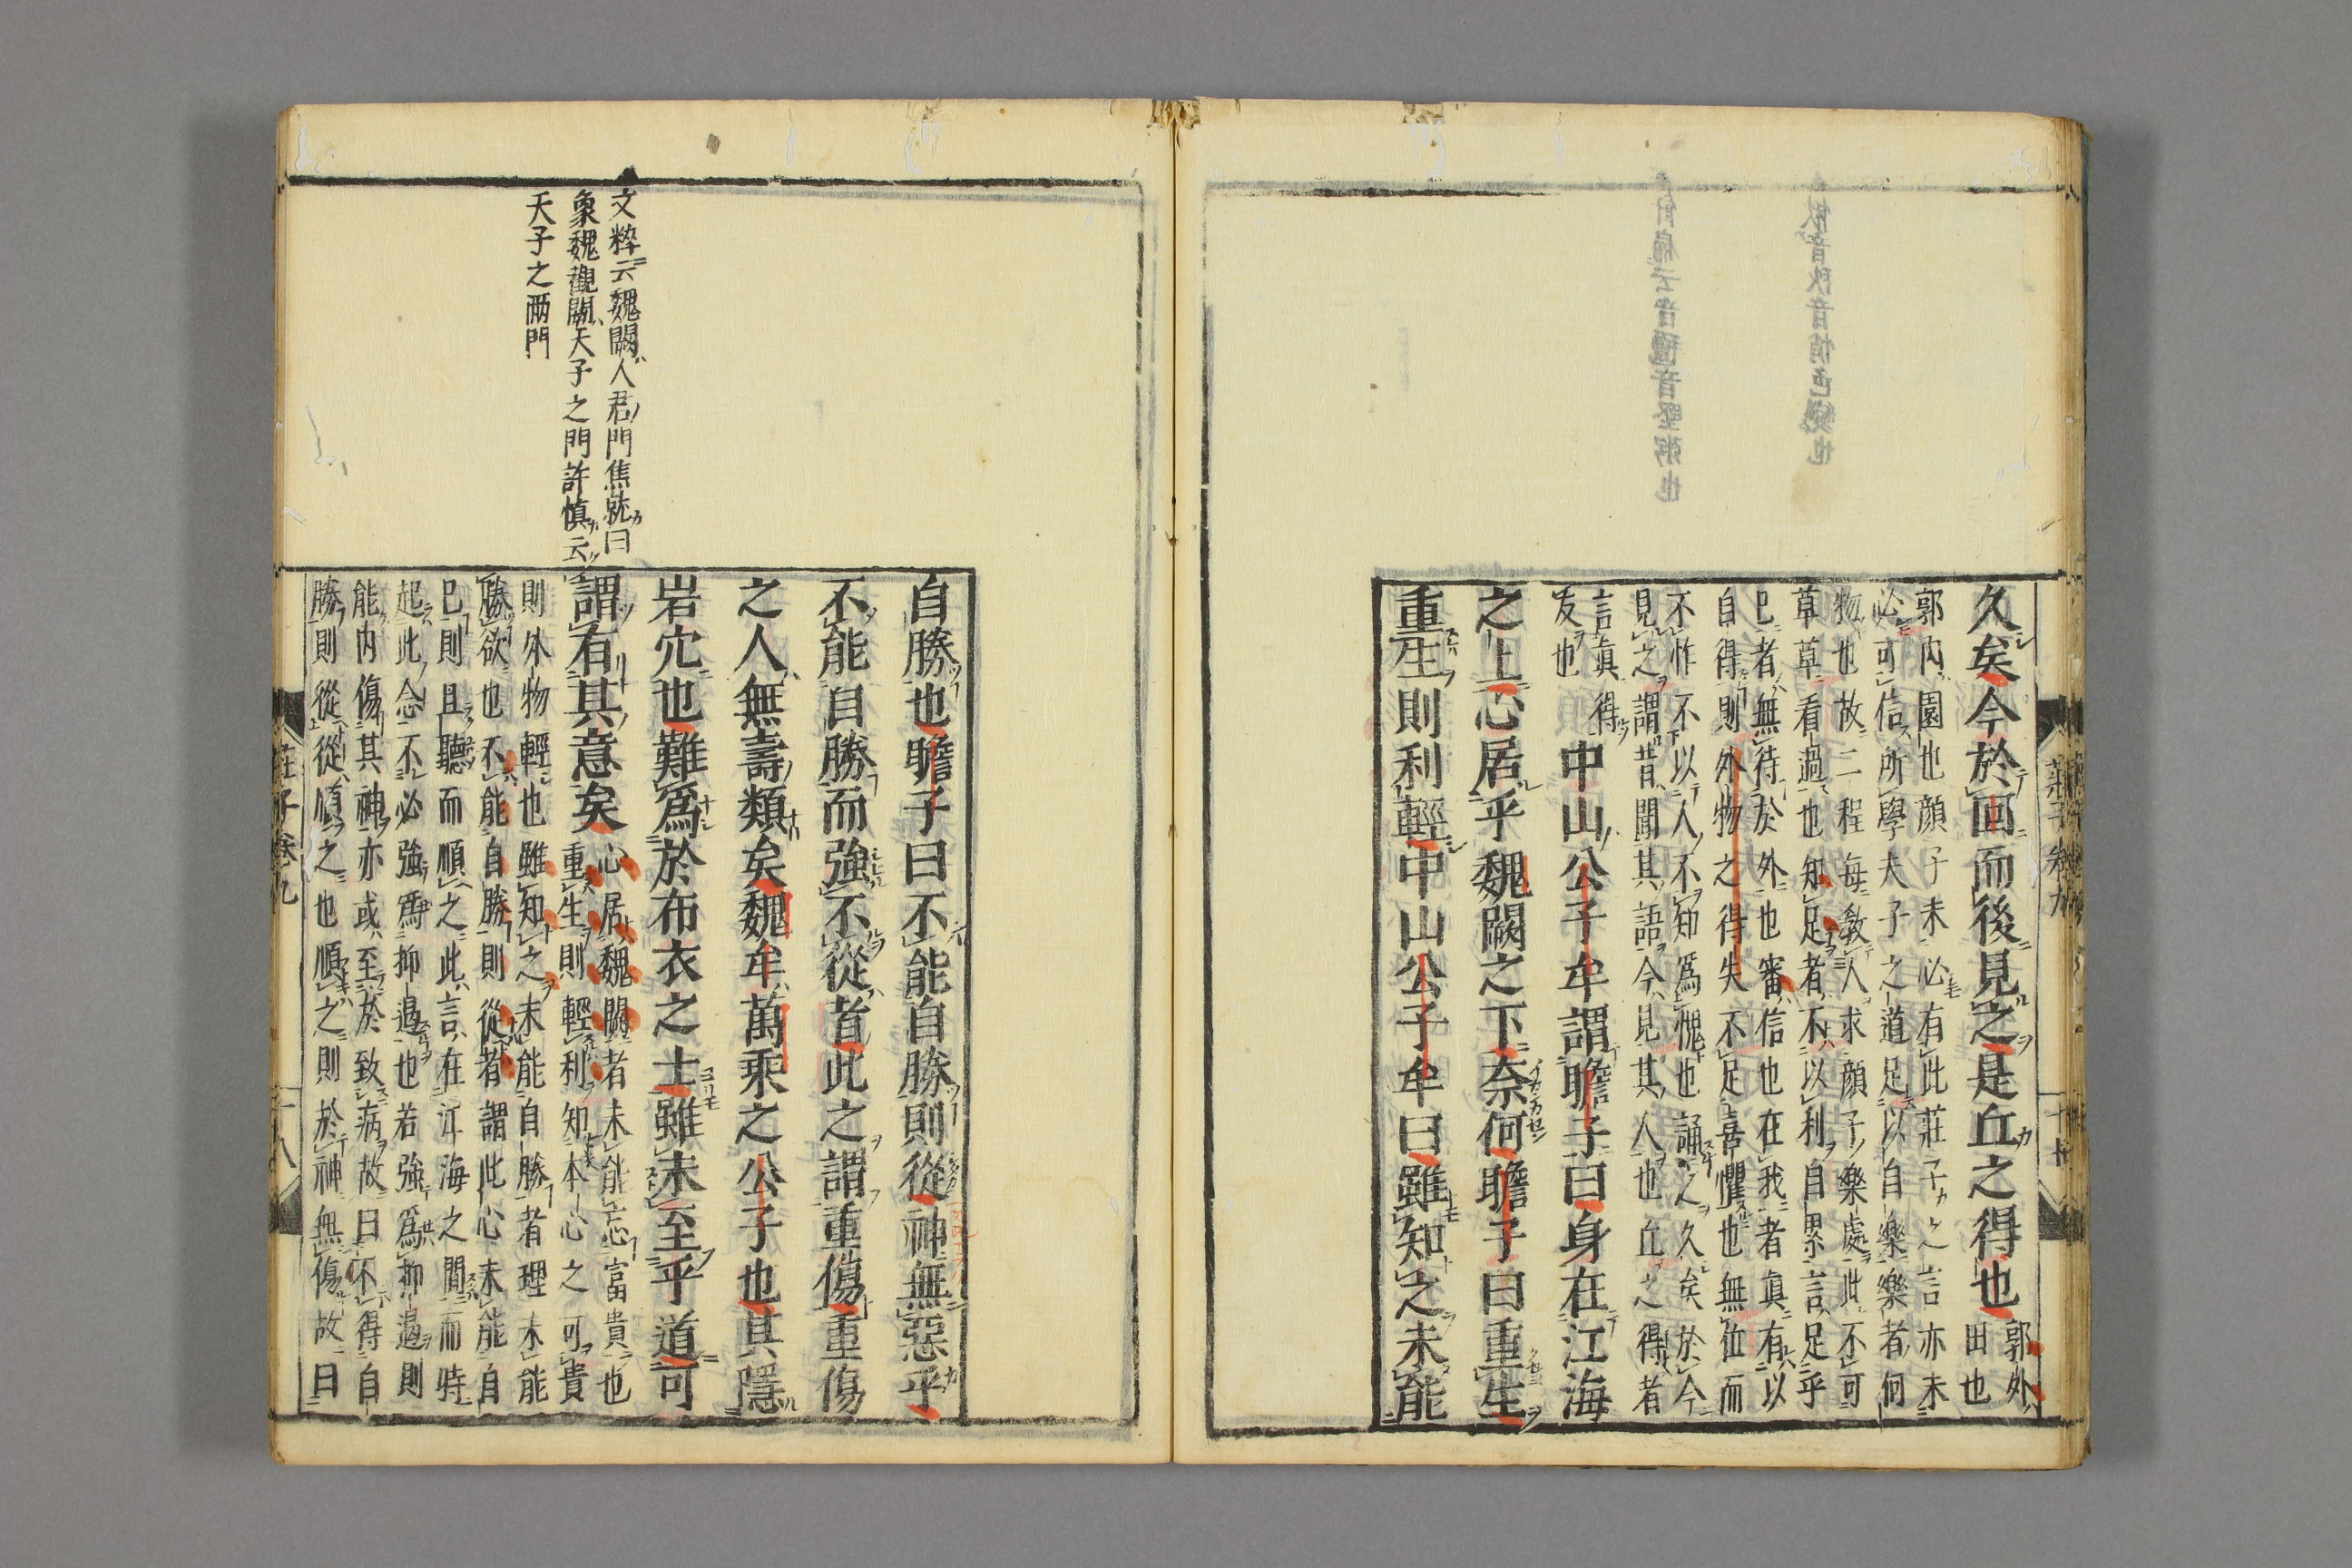 久矣今於回而後見之是丘之得也郭外
田也
郭內園也顔子未必有此莊子之言亦未
必可信所學夫子之道足以自樂樂者何
物也故二程每教人求顔子樂處此不可
草草看過也知足者不以利自累言足乎
已者無待於外也審信也在我者眞有以
自得則外物之得失不足喜懼也無位而
不怍不以人不知爲愧也誦之久矣於今
見之謂昔聞其語今見其人也丘之得者
言眞得
友也
中山公子牟謂瞻子曰身在江海
之上心居乎魏闕之下奈何瞻子曰重生
重生則利輕中山公子牟曰雖知之未能
莊子卷九
文粹云魏闕人君門焦竑曰
象魏觀闕天子之門許慎云
天子之兩門
自勝也瞻子曰不能自勝則從神無惡乎
不能自勝而強不從者此之謂重傷重傷
之人無壽類矣魏牟萬乘之公子也其隱
岩穴也難爲於布衣之士雖未至乎道可
謂有其意矣
心居魏闕者未能忘富貴也
重生則輕利知本心之可貴
則外物輕也雖知之未能自勝者理未能
勝欲也不能自勝則從者謂此心未能自
已則且聽而順之此言在江海之間而時
起此念不必強爲抑遏也若強爲抑遏則
能內傷其神亦或至於致病故曰不得自
勝則從從順之也順之則於神無傷故曰
莊子卷九
十八